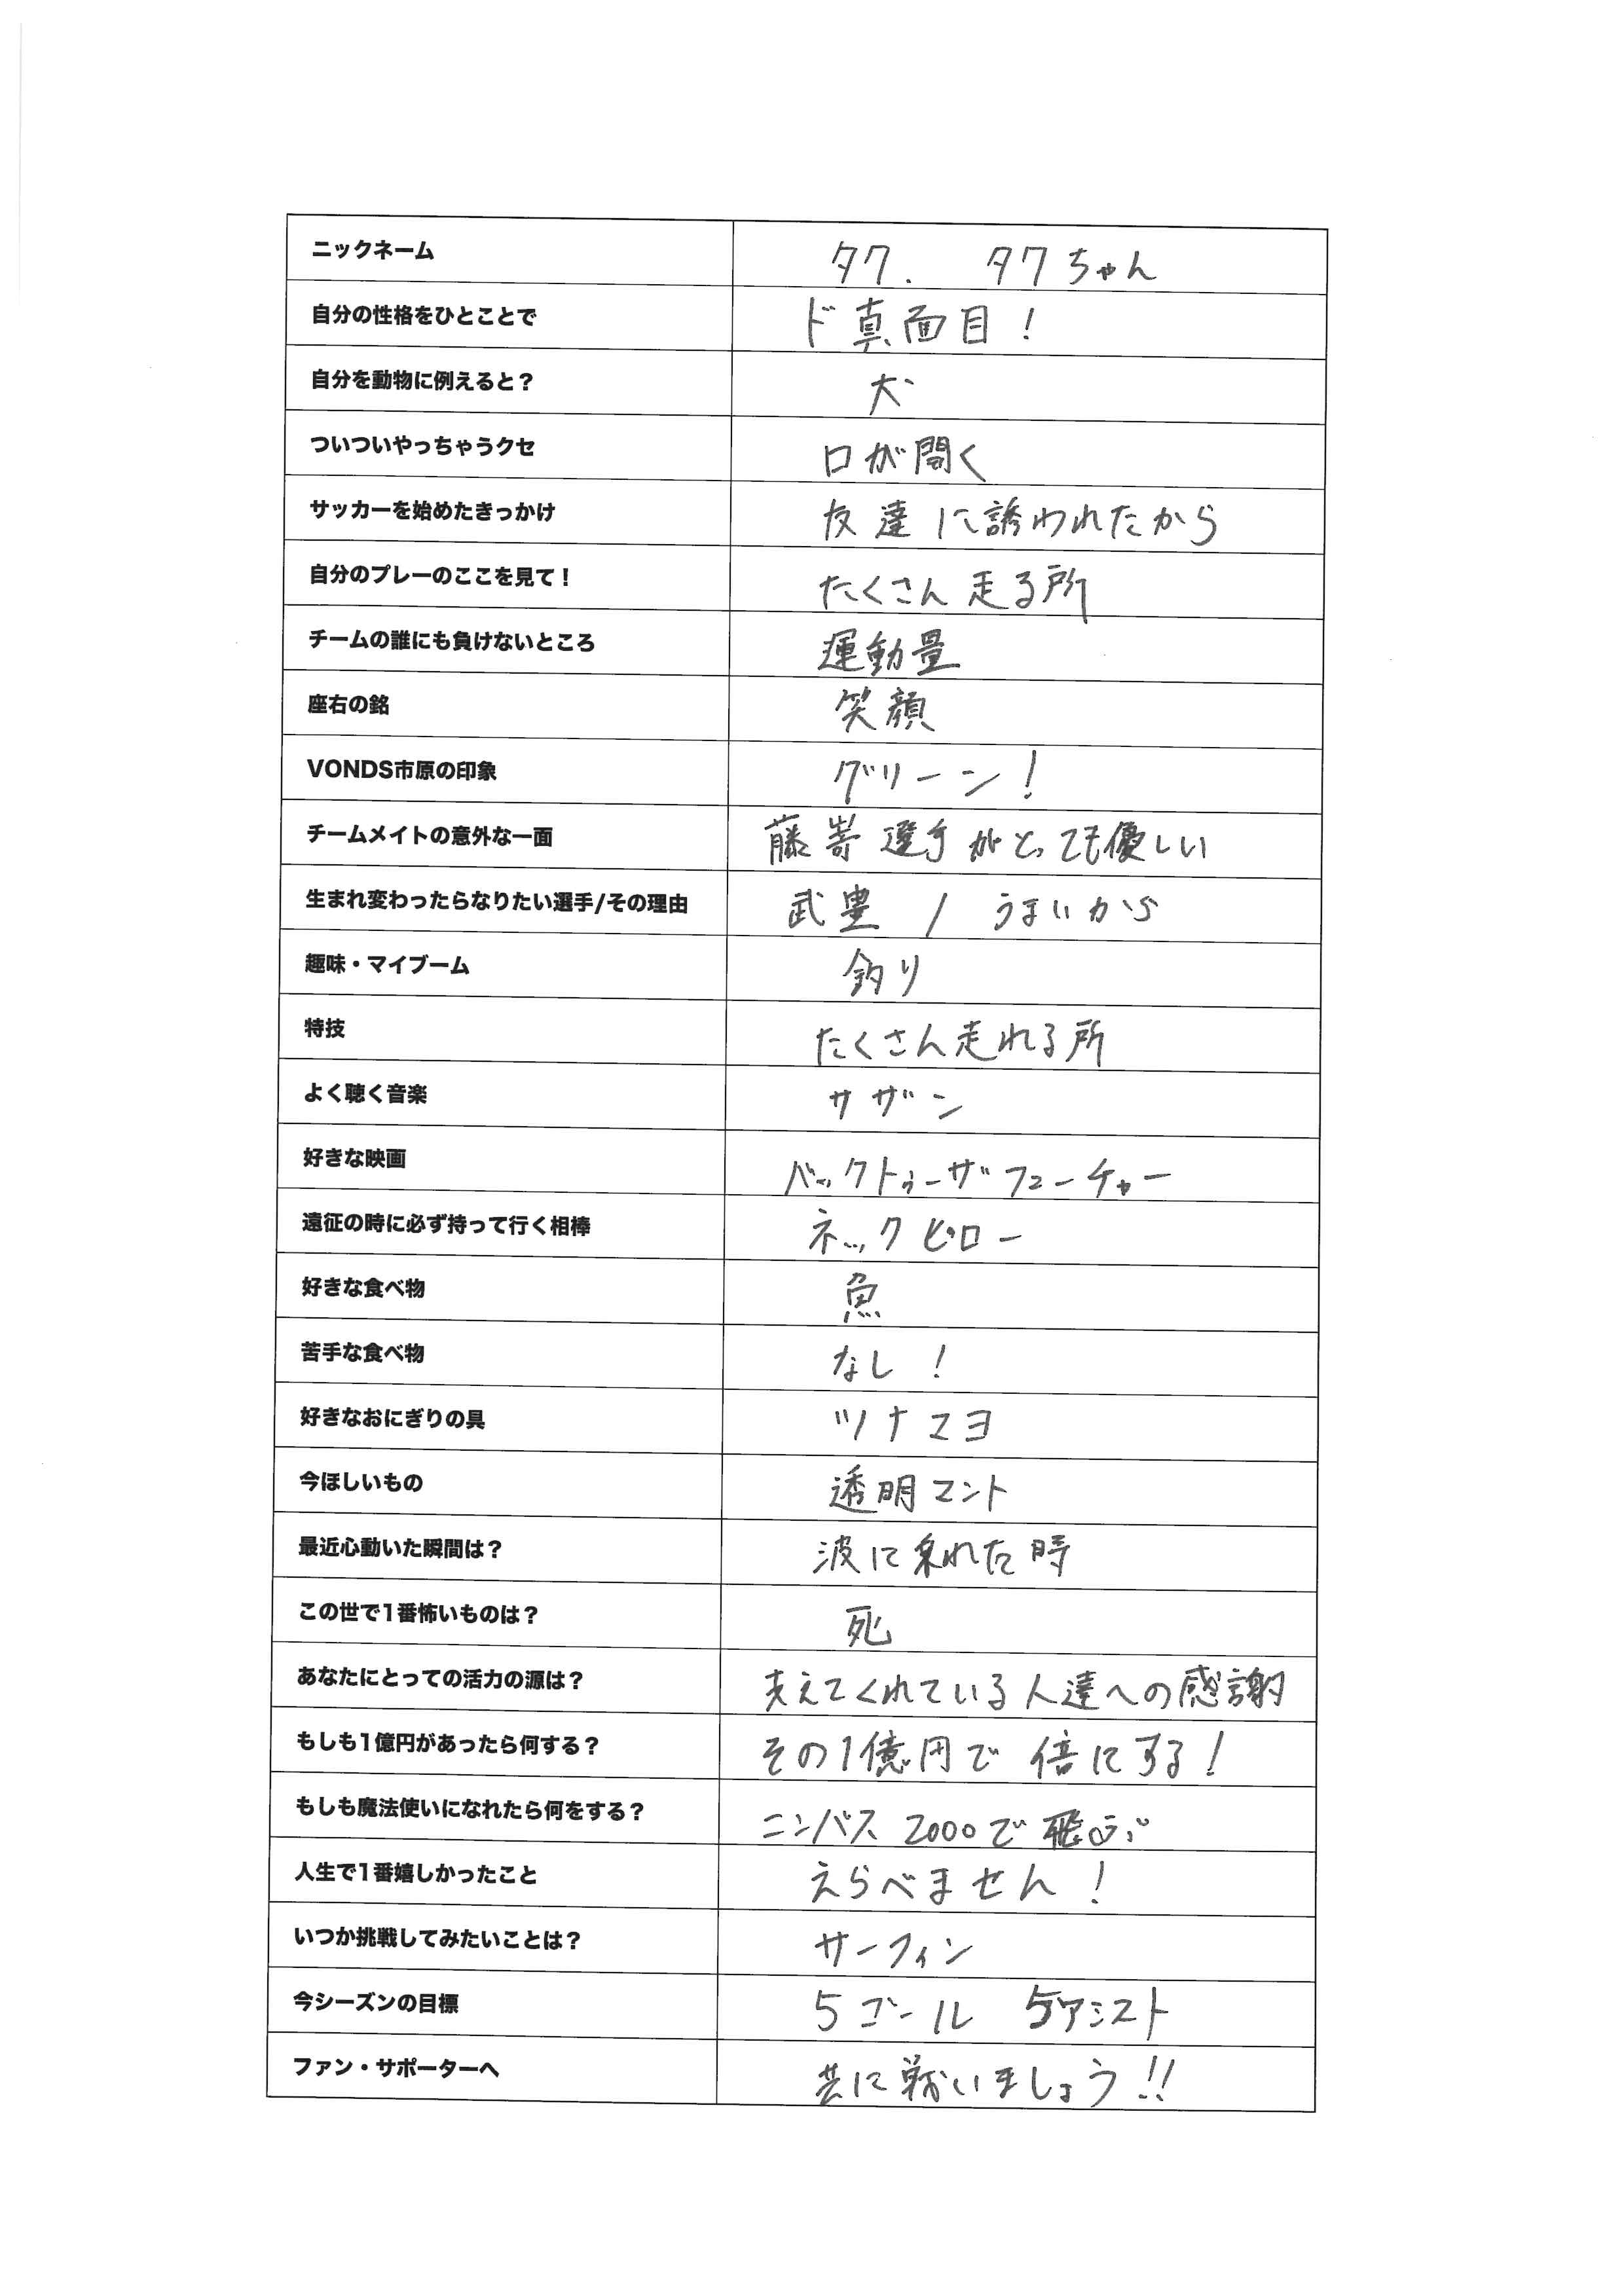 ニックネーム タク. タクちゃん
自分の性格をひとことで ド真面目!
自分を動物に例えると? 犬
ついついやっちゃうクセ 口が開く
サッカーを始めたきっかけ 友達に誘われたから
自分のプレーのここを見て! たくさん走る所
チームの誰にも負けないところ 運動量
座右の銘 笑顔
VONDS市原の印象 グリーン!
チームメイトの意外な一面 藤嵜選手がとっても優しい
生まれ変わったらなりたい選手/その理由 武豊 / うまいから
趣味・マイブーム 釣り
特技 たくさん走れる所
よく聴く音楽 サザン
好きな映画 バックトゥーザフューチャー
遠征の時に必ず持って行く相棒 ネックピロー
好きな食べ物 魚
苦手な食べ物 なし!
好きなおにぎりの具 ツナマヨ
今ほしいもの 透明マント
最近心動いた瞬間は? 波に乗れた時
この世で1番怖いものは? 死
あなたにとっての活力の源は? 支えてくれている人達への感謝
もしも1億円があったら何する? その1億円で倍にする!
もしも魔法使いになれたら何をする? ニンバス2000で飛ぶ
人生で1番嬉しかったこと えらべません!
いつか挑戦してみたいことは? サーフィン
今シーズンの目標 5ゴール 5アシスト
ファン・サポーターへ 共に戦いましょう!!